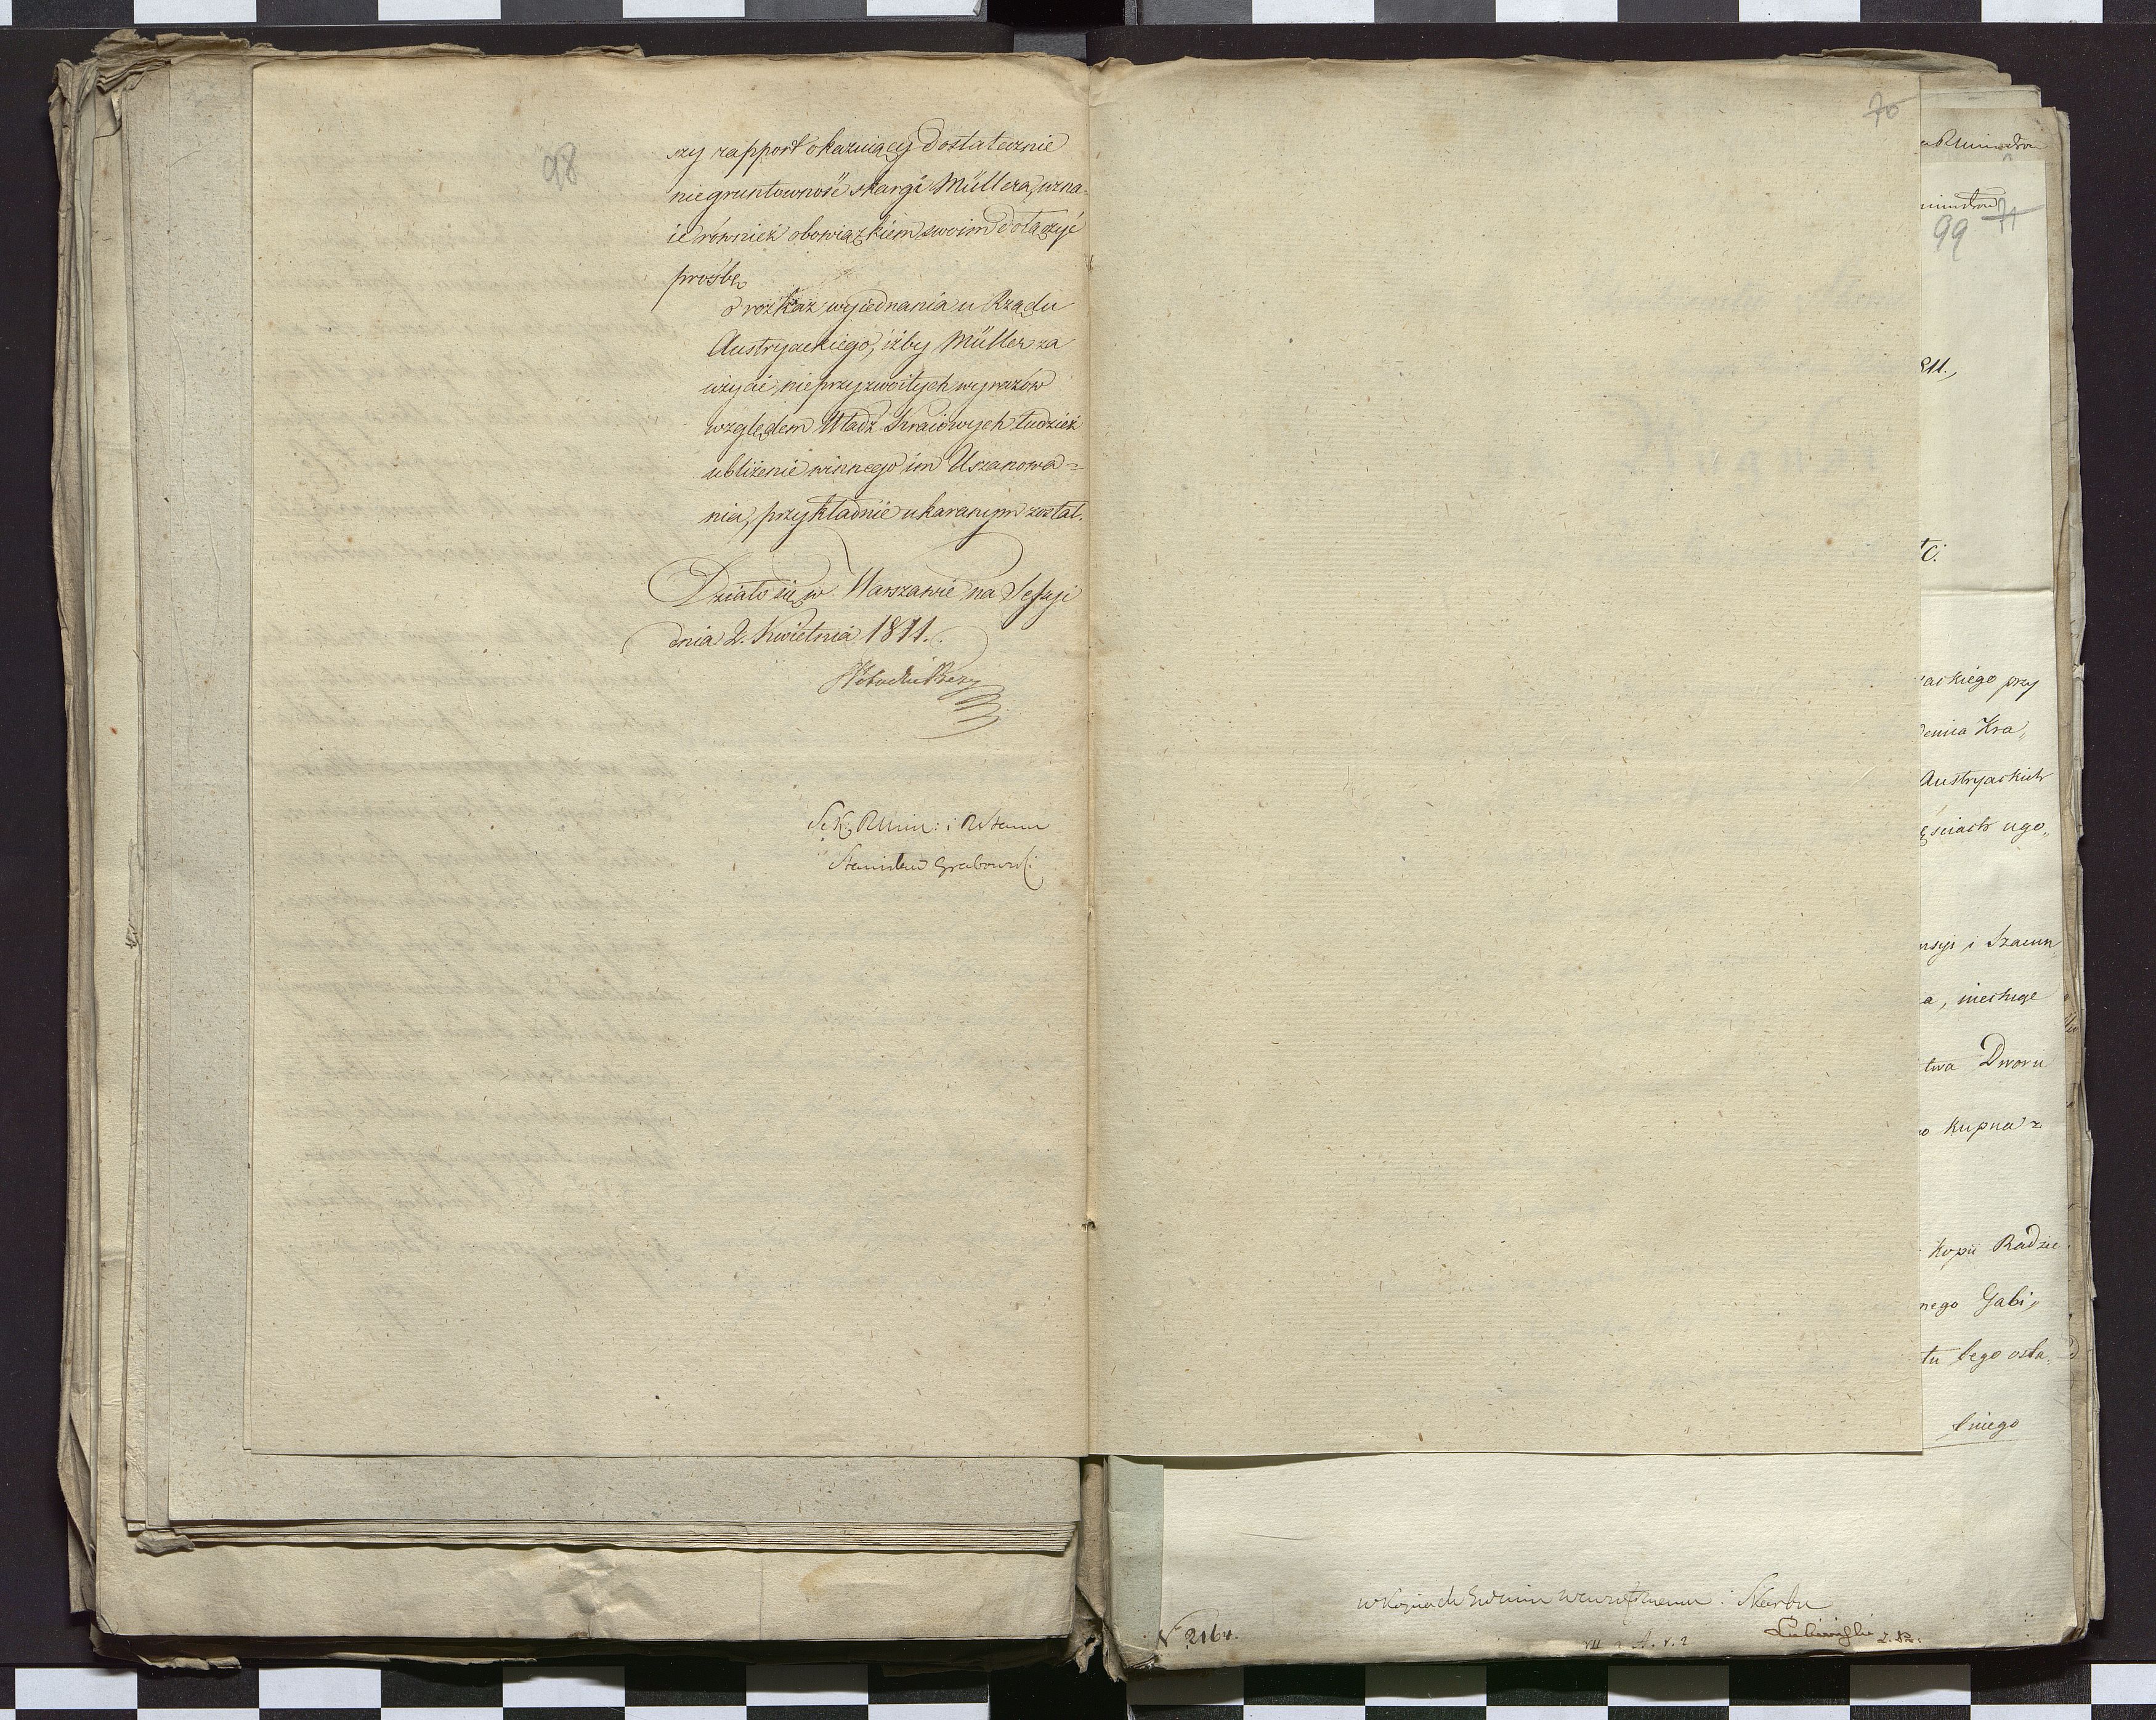 98
szy rapport okazuiący dostatecznie
niegruntowność skargi Müllera, uzna-
ie również obowiązkiem swoim dołączyć
prośbę
o rozkaz wyiednania u Rządu
Austryackiego, iżby Müller za
użycie nieprzyzwoitych wyrazów
względem Władz Kraiowych tudzież
ubliżenie winnego im Uszanowa=
nia, przykładnie ukaranym został.
Działo się w Warszawie na Sessyi
dnia 2. Kwietnia 1811.
Sek. RMin: i RStanu
Stanisław Grabowski
70
ministrów
99 71
811.,
tC.
ackiego przy
denia Kra„
Austryackich
ęściach ugo„
nsyi i Szacun„
a, niesługe
twa Dworu
o kupna z
kopii Radzie
nego Gabi„
tu tego osta„
tniego
w kopiach Skarbu
N 2164.